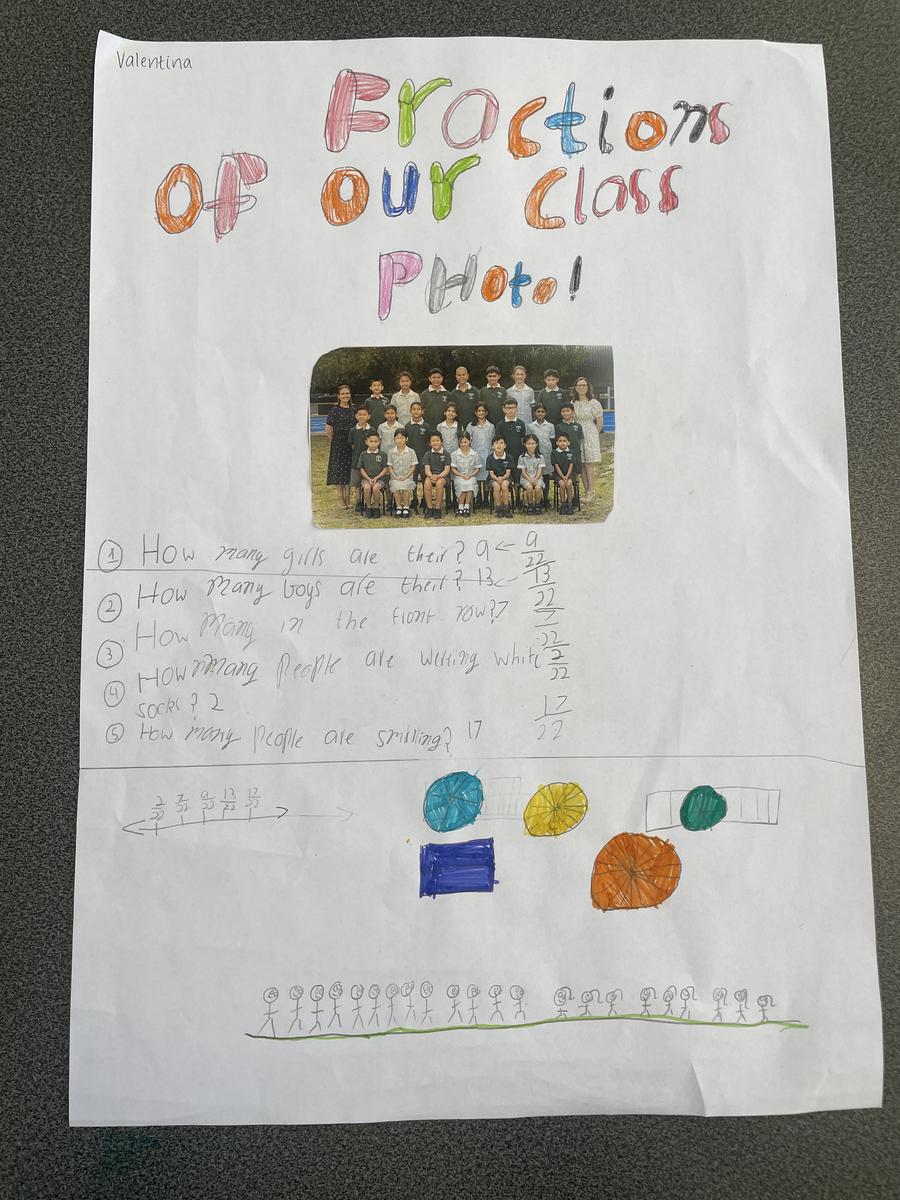 Valentina
Fractions
OF our Class
PHoto!
1 How many girls are their? 9 ← 9/22
2 How Many boys are their? 13 ← 13/22
3 How Many in the front row? 7 7/22
4 How many People are werring white 2/22
socks? 2
5 How many People are smilling? 17 17/22
2/22 7/22 9/22 13/22 17/22